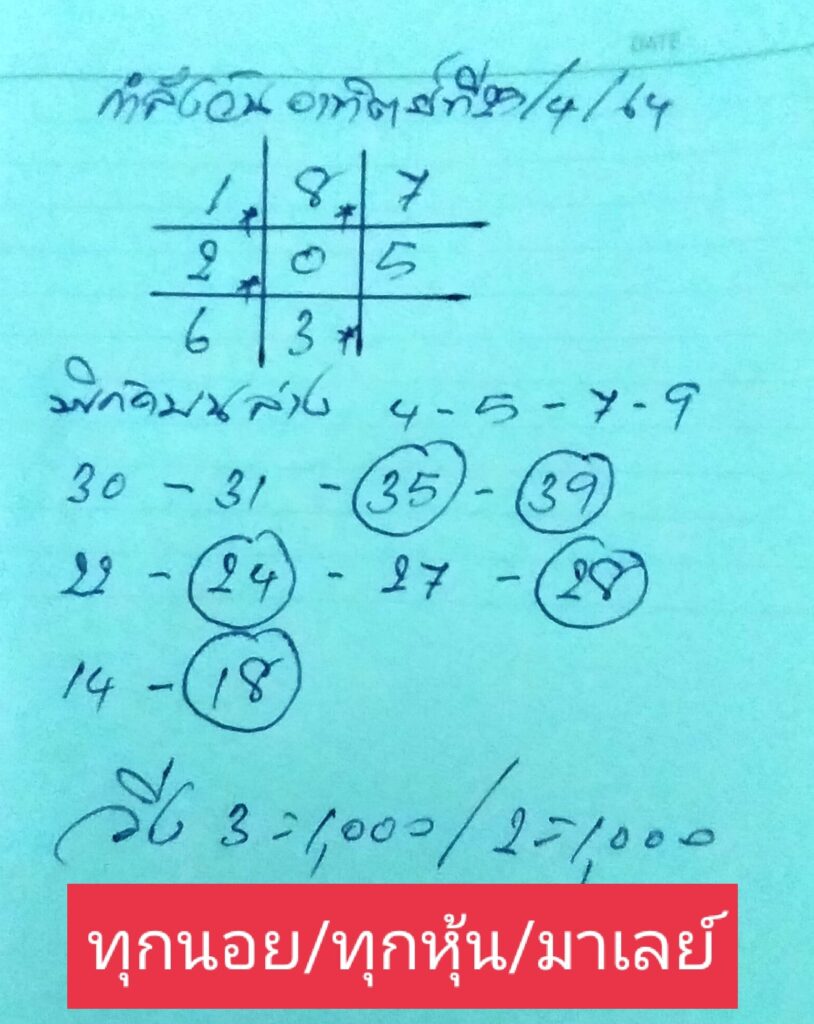 DATE
กำลังวัน อาทิตย์ที่ /4/64
1 * 8 * 7
2 * 0 5
6 3 *
พิกัดบนล่าง 4 - 5 - 7 - 9
30 - 31 - 35 - 39
22 - 24 - 27 - 28
14 - 18
วิ่ง 3 = 1,000 / 2 = 1,000
ทุกนอย/ทุกหุ้น/มาเลย์